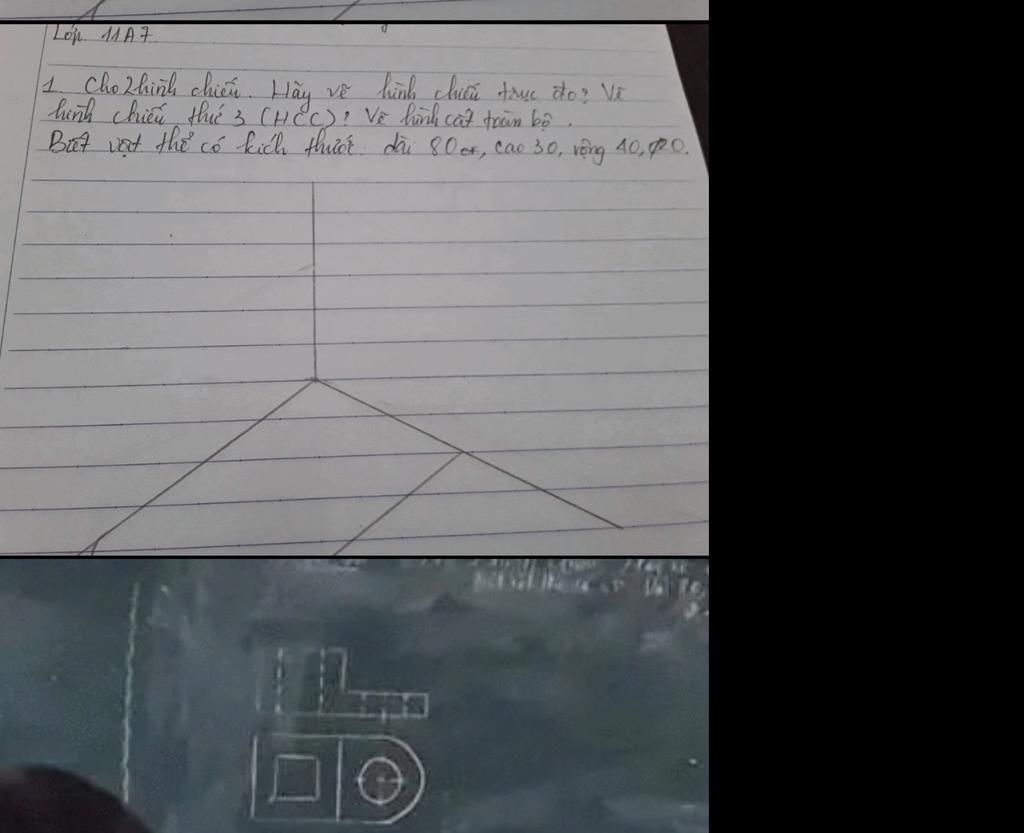 Lớp 11A7
1. Cho 2 hình chiếu. Hãy vẽ hình chiếu trục đo? Vẽ
hình chiếu thứ 3 (HCC)? Vẽ hình cắt toàn bộ.
Biết vật thể có kích thước dài 80, cao 30, rộng 40, φ20.